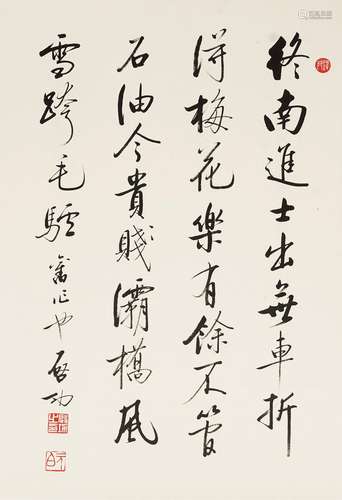 終南進士出無車折
得梅花樂有餘不管
石油今貴賤灞橋風
雪跨毛驢 舊作也 啟功